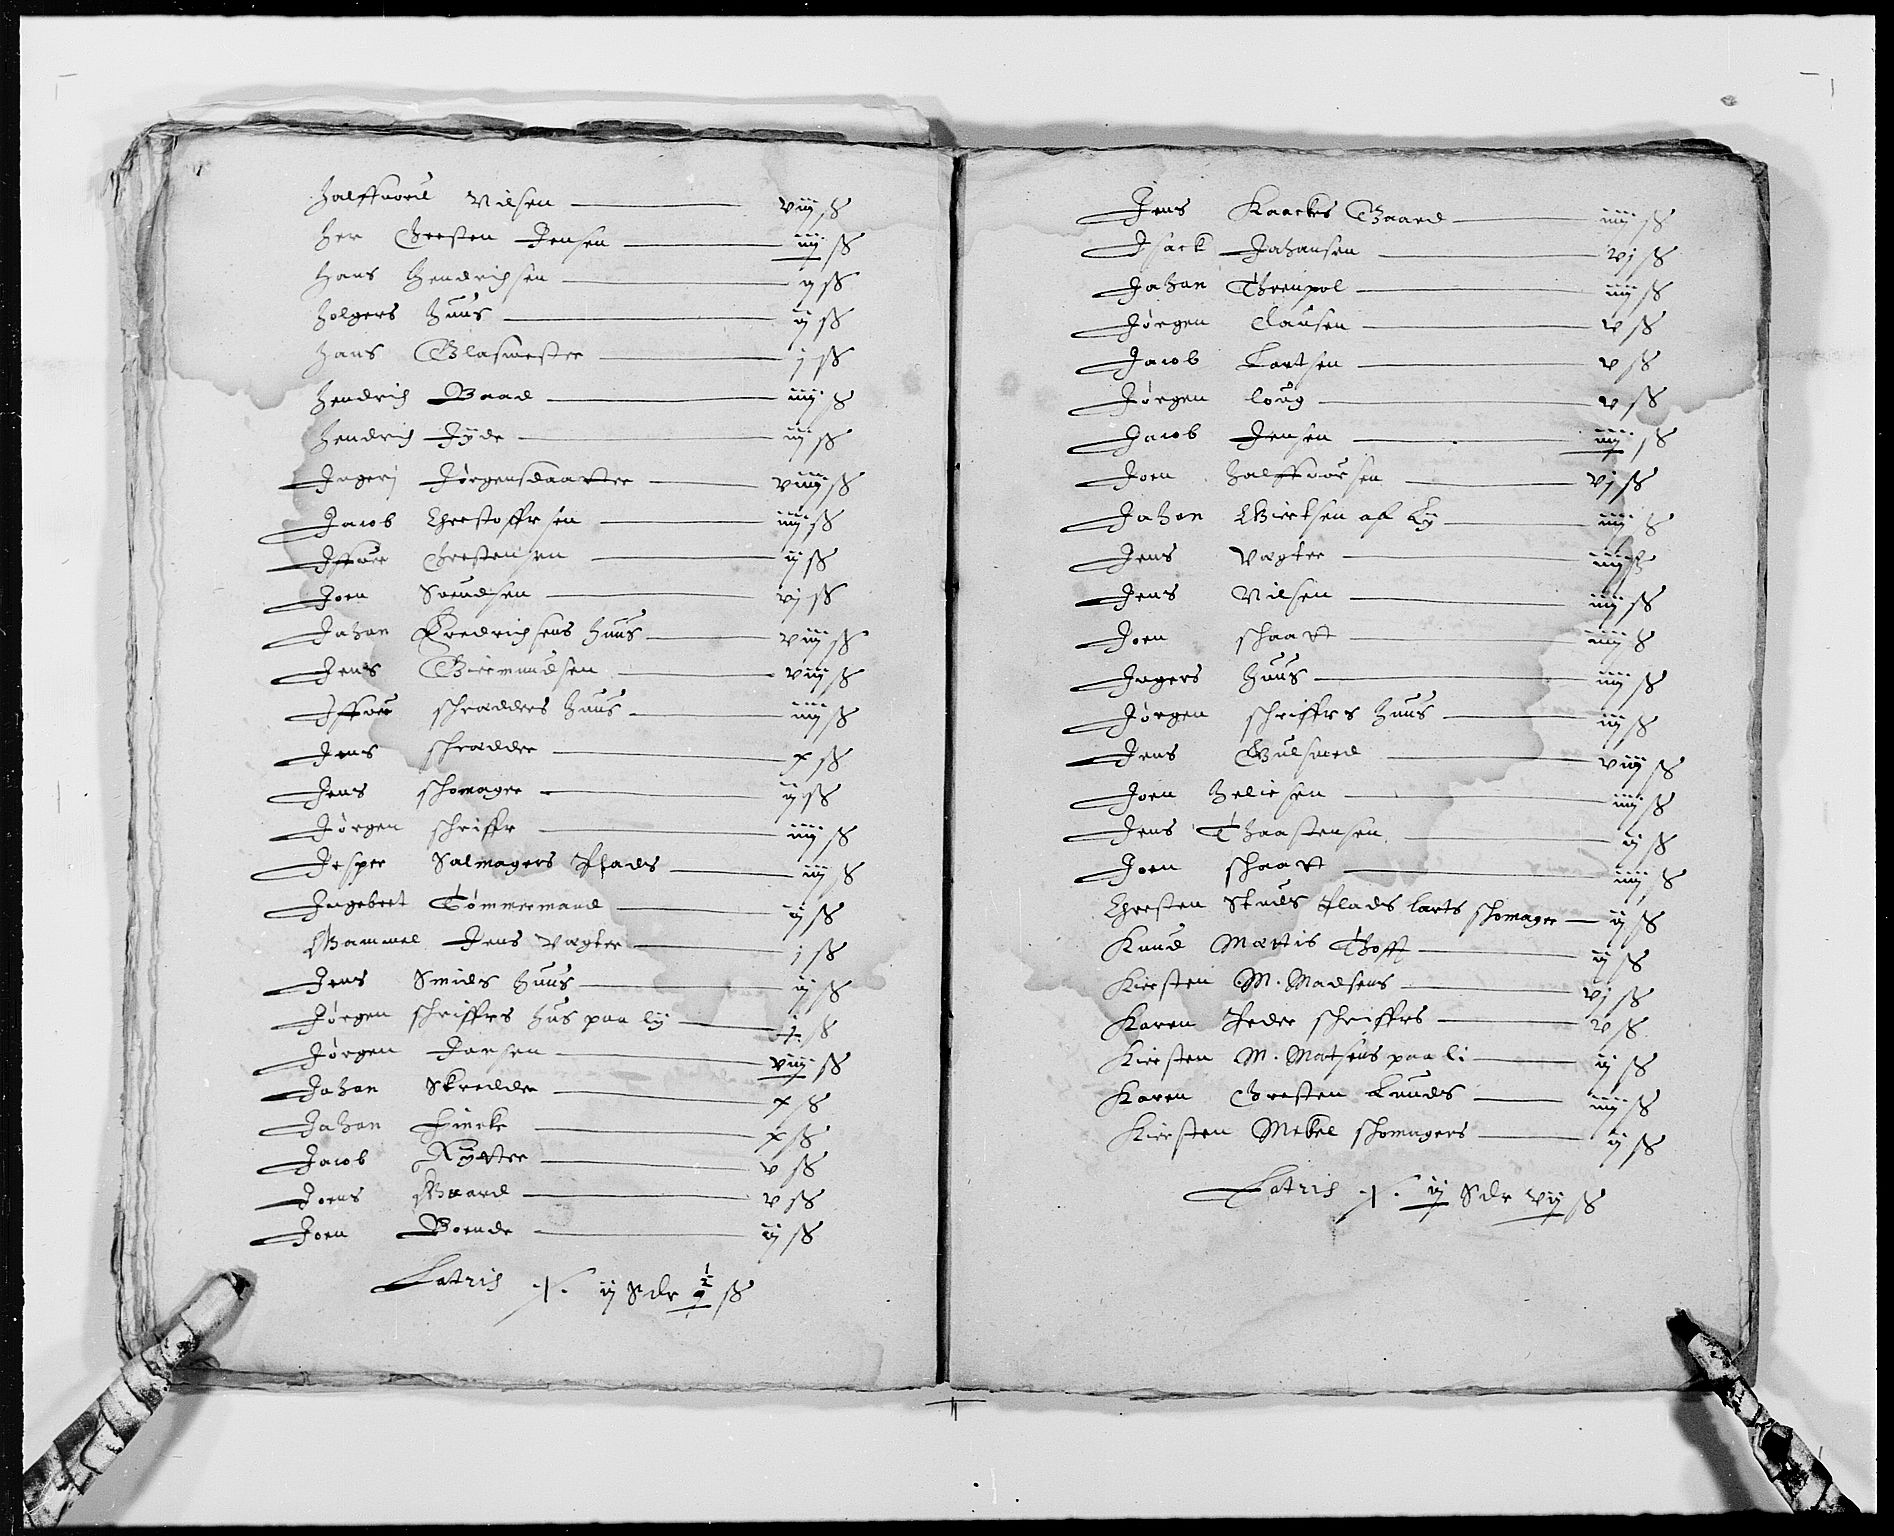 Halffuord Nilsen — viij ß
Her Christen Jensen — iiij ß
Hans Hendrichsen — ij ß
Holgers Huus — ij ß
Hans Glasmester — j ß
Hendrich Baad — iiij ß
Hendrich Jyde — iij ß
Ingerj Jørgensdaatter — viiij ß
Jacob Christoffersen — iiij ß
Iffuer Christensen — ij ß
Joen Suendsen — vj ß
Johan Fredrichsens Huus — viij ß
Jens Giermundsen — viij ß
Iffuer schredders Huus — iiij ß
Jens schredder — x ß
Jens schomager — ij ß
Jørgen schriffr — iiij ß
Jesper Salmagers Plads — iij ß
Ingebret Tømmermand — ij ß
Gammel Jens Vegter — j ß
Jens Smids Huus — ij ß
Jørgen schriffrs Hus paa lij — ß
Jørgen Jansen — viij ß
Johan Skredder — x ß
Johan Fincke — x ß
Jacob Rytter — v ß
Joens Gaard — v ß
Joen Bonde — ij ß
Latris ij Sdr ½ ß
Jens Kaackes Gaard — iiij ß
Isack Johansen — vj ß
Johan — iiij ß
Jørgen Clausen — v ß
Jacob Lartsen — v ß
Jørgen loug — v ß
Jacob Jensen — iiij ß
Joen Halffuorsen — vj ß
Johan af Ly — iiij ß
Jens Vegter — iiij ß
Jens Nilsen — iiij ß
Joen schaat — iiij ß
Ingers Huus — iiij ß
Jørgen schriffrs Huus — iij ß
Jens Gulsmed — viij ß
Joen Heliesen — iiij ß
Jens Thaastensen — ij ß
Joen schaat — iiij ß
Christen Skuls Plads larts schomager — ij ß
Knud Mattis Thofft — ij ß
Kiersten M. Madsens — vj ß
Karen Peder schriffrs — v ß
Kiersten M. Matsens paa li — ij ß
Karen Christen Lunds — iiij ß
Kiersten Mekel schomagers — ij ß
Latris ij Sdr vij ß